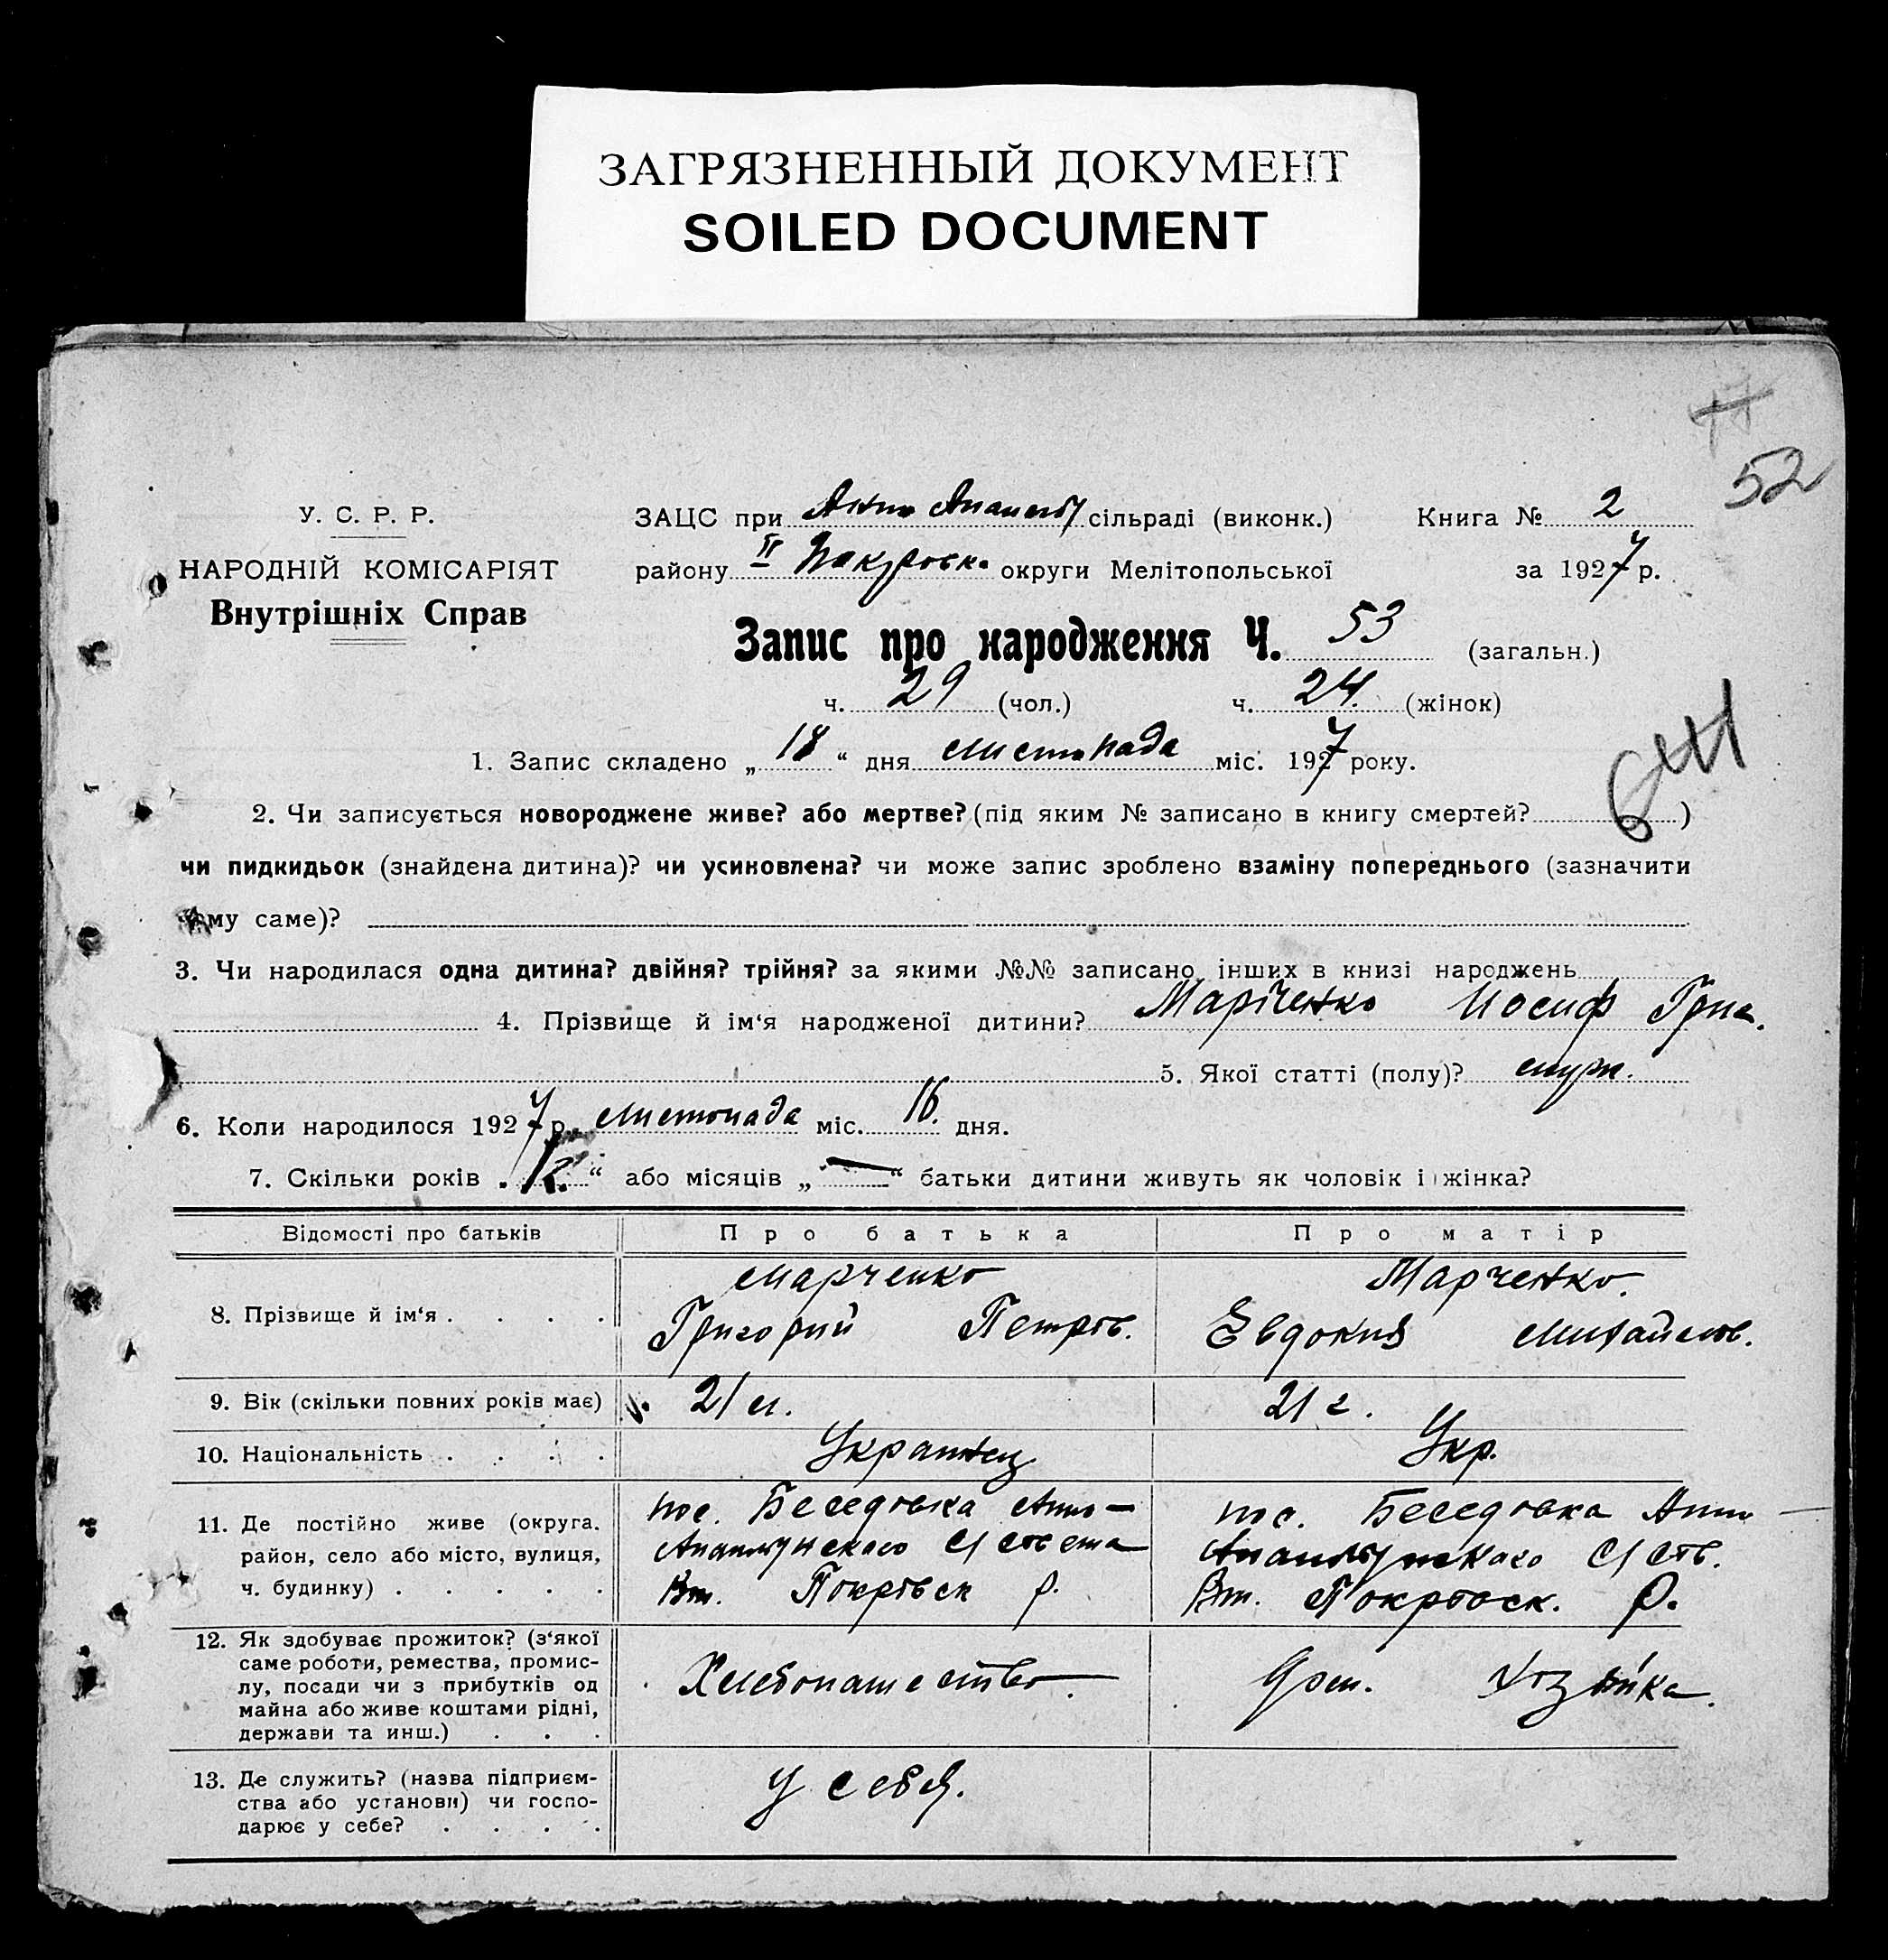 ЗАГРЯЗНЕННЫЙ ДОКУМЕНТ
SOILED DOCUMENT
52
У. С. Р. Р.
НАРОДНІЙ КОМІСАРІЯТ
Внутрішніх Справ
ЗАЦС при сільраді (виконк.) Книга № 2
району II округи Мелітопольської за 1927 р.
Запис про народження Ч. 53 (загальн.)
ч. 29 (чол.) ч. 24. (жінок)
1. Запис складено „ 18 “ дня Листопада міс. 1927 року.
2. Чи записується новороджене живе? або мертве? (під яким № записано в книгу смертей? )
чи пидкидьок (знайдена дитина)? чи усиновлена? чи може запис зроблено взаміну попереднього (зазначити
йому саме)?
3. Чи народилася одна дитина? двійня? трійня? за якими №№ записано інших в книзі народжень
4. Прізвище й ім‘я народженої дитини? Марченко Иосиф Григ.
5. Якої статті (полу)? муж.
6. Коли народилося 1927 р. Листопада міс. 16. дня.
7. Скільки років „ “ або місяців „ — “ батьки дитини живуть як чоловік і жінка?
Відомості про батьків Про батька Про матір
8. Прізвище й ім‘я . . . .
Марченко
Григорий Петров.
Марченко.
Евдокия Михайлов.
9. Вік (скільки повних років має) 21 л. 21 г.
10. Національність . . . . Украинец Укр.
11. Де постійно живе (округа,
район, село або місто, вулиця,
ч. будинку) . . . . .
пос. Беседовка Анно-
С/Совета
Вт. Покровск р.
пос. Беседовка Анно-
С/Сов.
Вт. Покровск. р.
12. Як здобуває прожиток? (з‘якої
саме роботи, ремества, промис-
лу, посади чи з прибутків од
майна або живе коштами рідні,
держави та инш.) . . .
Хлебопашество.
Дом. Хозяйка.
13. Де служить? (назва підприєм-
ства або установи) чи госпо-
дарює у себе? . . . .
У себя.